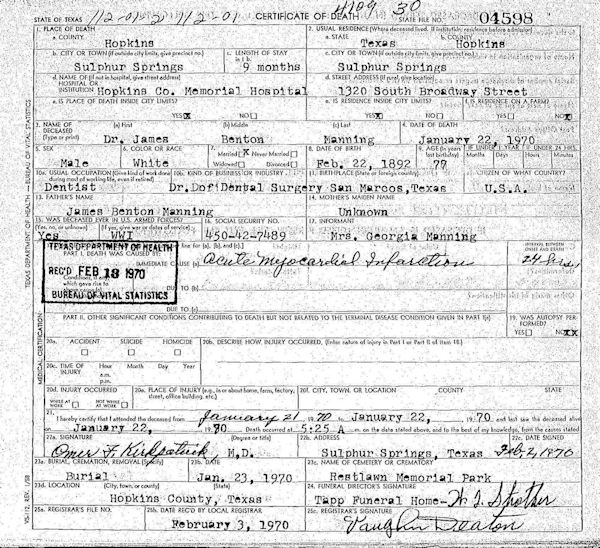 STATE OF TEXAS 112-01-2 112-01 CERTIFICATE OF DEATH 4109 30 STATE FILE NO. 04598
1. PLACE OF DEATH 2. USUAL RESIDENCE (Where deceased lived. If institution: residence before admission)
a. COUNTY a. STATE b. COUNTY
Hopkins Texas Hopkins
b. CITY OR TOWN (If outside city limits, give precinct no.) c. LENGTH OF STAY in 1 b. c. CITY OR TOWN (If outside city limits, give precinct no.)
Sulphur Springs 9 months Sulphur Springs
d. NAME OF (If not in hospital, give street address) d. STREET ADDRESS (If rural, give location)
HOSPITAL OR
INSTITUTION Hopkins Co. Memorial Hospital 1320 South Broadway Street
e. IS PLACE OF DEATH INSIDE CITY LIMITS? e. IS RESIDENCE INSIDE CITY LIMITS? f. IS RESIDENCE ON A FARM?
YES X NO YES X NO YES NO X
3. NAME OF DECEASED (Type or print) (a) First (b) Middle (c) Last 4. DATE OF DEATH
Dr. James Benton Manning January 22, 1970
5. SEX 6. COLOR OR RACE 7. Married X Never Married 8. DATE OF BIRTH 9. AGE (In years last birthday) IF UNDER 1 YEAR IF UNDER 24 HRS.
Widowed Divorced Months Days Hours Min.
Male White Feb. 22, 1892 77
10a. USUAL OCCUPATION (Give kind of work done during most of working life, even if retired) 10b. KIND OF BUSINESS OR INDUSTRY 11. BIRTHPLACE (State or foreign country) 12. CITIZEN OF WHAT COUNTRY?
Dentist Dr. Dof Dental Surgery San Marcos, Texas U.S.A.
13. FATHER'S NAME 14. MOTHER'S MAIDEN NAME
James Benton Manning Unknown
15. WAS DECEASED EVER IN U.S. ARMED FORCES? 16. SOCIAL SECURITY NO. 17. INFORMANT
(Yes, no, or unknown) (If yes, give war or dates of service)
Yes WWI 450-42-7489 Mrs. Georgia Manning
TEXAS DEPARTMENT OF HEALTH
REC'D FEB 18 1970
BUREAU OF VITAL STATISTICS
line for (a), (b), and (c).] INTERVAL BETWEEN ONSET AND DEATH
PART I. DEATH WAS CAUSED BY:
IMMEDIATE CAUSE (a) Acute Myocardial Infarction 24 hrs.
DUE TO (b)
DUE TO (c)
PART II. OTHER SIGNIFICANT CONDITIONS CONTRIBUTING TO DEATH BUT NOT RELATED TO THE TERMINAL DISEASE CONDITION GIVEN IN PART I(a) 19. WAS AUTOPSY PERFORMED?
YES NO XX
20a. ACCIDENT SUICIDE HOMICIDE 20b. DESCRIBE HOW INJURY OCCURRED. (Enter nature of injury in Part I or Part II of item 18.)
20c. TIME OF INJURY Hour Month Day Year
a.m.
p.m.
20d. INJURY OCCURRED 20e. PLACE OF INJURY (e.g., in or about home, farm, factory, street, office building, etc.) 20f. CITY, TOWN, OR LOCATION COUNTY STATE
WHILE AT WORK NOT WHILE AT WORK
21. I hereby certify that I attended the deceased from January 21 1970 to January 22, 1970 and last saw the deceased alive
on January 22, 1970 Death occurred at 5:25 A m. on the date stated above, and to the best of my knowledge, from the causes stated
22a. SIGNATURE (Degree or title) 22b. ADDRESS 22c. DATE SIGNED
Omer F. Kirkpatrick, M.D. Sulphur Springs, Texas Feb 2, 1970
23a. BURIAL, CREMATION, REMOVAL (Specify) 23b. DATE 23c. NAME OF CEMETERY OR CREMATORY
Burial Jan. 23, 1970 Restlawn Memorial Park
23d. LOCATION (City, town, or county) (State) 24. FUNERAL DIRECTOR'S SIGNATURE
Hopkins County, Texas Tapp Funeral Home-
25a. REGISTRAR'S FILE NO. 25b. DATE REC'D BY LOCAL REGISTRAR 25c. REGISTRAR'S SIGNATURE
February 3, 1970 Vaughn Deaton
TEXAS DEPARTMENT OF HEALTH — BUREAU OF VITAL STATISTICS
MEDICAL CERTIFICATION
VS-112, REV. 1/58